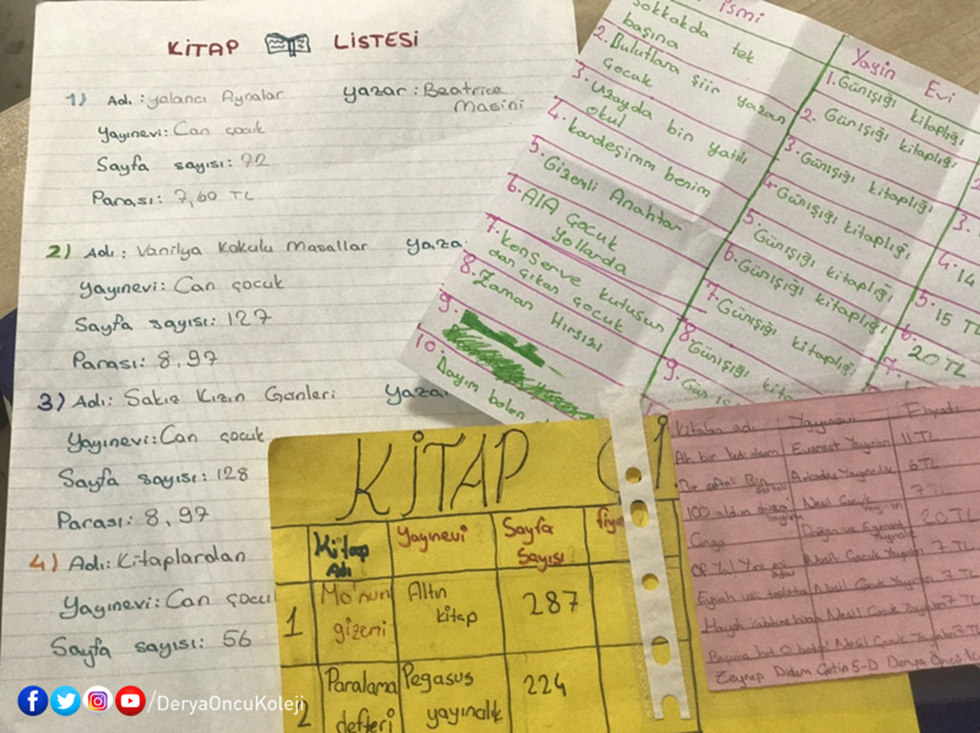 KİTAP LİSTESİ
1) Adı: Yalancı Aynalar yazar: Beatrice
Masini
Yayınevi: Can çocuk
Sayfa sayısı: 72
Parası: 7,60 TL
2) Adı: Vanilya Kokulu Masallar yaza
Yayınevi: Can çocuk
Sayfa sayısı: 127
Parası: 8,97
3) Adı: Sakız Kızın Günleri yaza
Yayınevi: Can çocuk
Sayfa sayısı: 128
Parası: 8,97
4) Adı: Kitaplardan
Yayınevi: Can çocu
Sayfa sayısı: 56
ismi
sokkakda tek
başına
2. Bulutlara şiir yazan
çocuk
3. Uzayda bin yatılı
okul
4. kardeşimm benim
5. Gizemli Anahtar
6. AIA çocuk
Yollarda
7. konserve kutusun
dan çıkan çocuk
8. Zaman Hırsızı
9.
10. Dayım balon
Yayin Evi
1. Günışığı kitaplığı
2. Günışığı kitaplığı
3. Günışığı kitaplığı
4. Günışığı kitaplığı
5. Günışığı kitaplığı
6. Günışığı kitaplığı
7. Günışığı kitaplığı
8. Günışığı kita
9. Gün
3.
4. 14
5. 15 TL
6. 20 TL
7.
KİTAP
Kitap Adı Yayınevi Sayfa Sayısı fiya
1 Mo'nun gizemi Altın kitap 287
2 Paralama defteri Pegasus yayınalık 224
Kitabın adı Yayınevi Fiyatı
Ah bir kedi olsam Everest Yayınları 11 TL
Arkadaş Yayıncılık 6 TL
100 Nesil Çocuk 7 TL
Doğan Egmont 20 TL
Nesil Çocuk Yayınları 7 TL
Eyvah Nesil Çocuk Yayınları 7 TL
Haydi Nesil Çocuk Yayınları 7 TL
Nesil Çocuk Yayınları 7 TL
Zeynep Didem Çetin 5-D Derya Öncü
/DeryaOncuKoleji